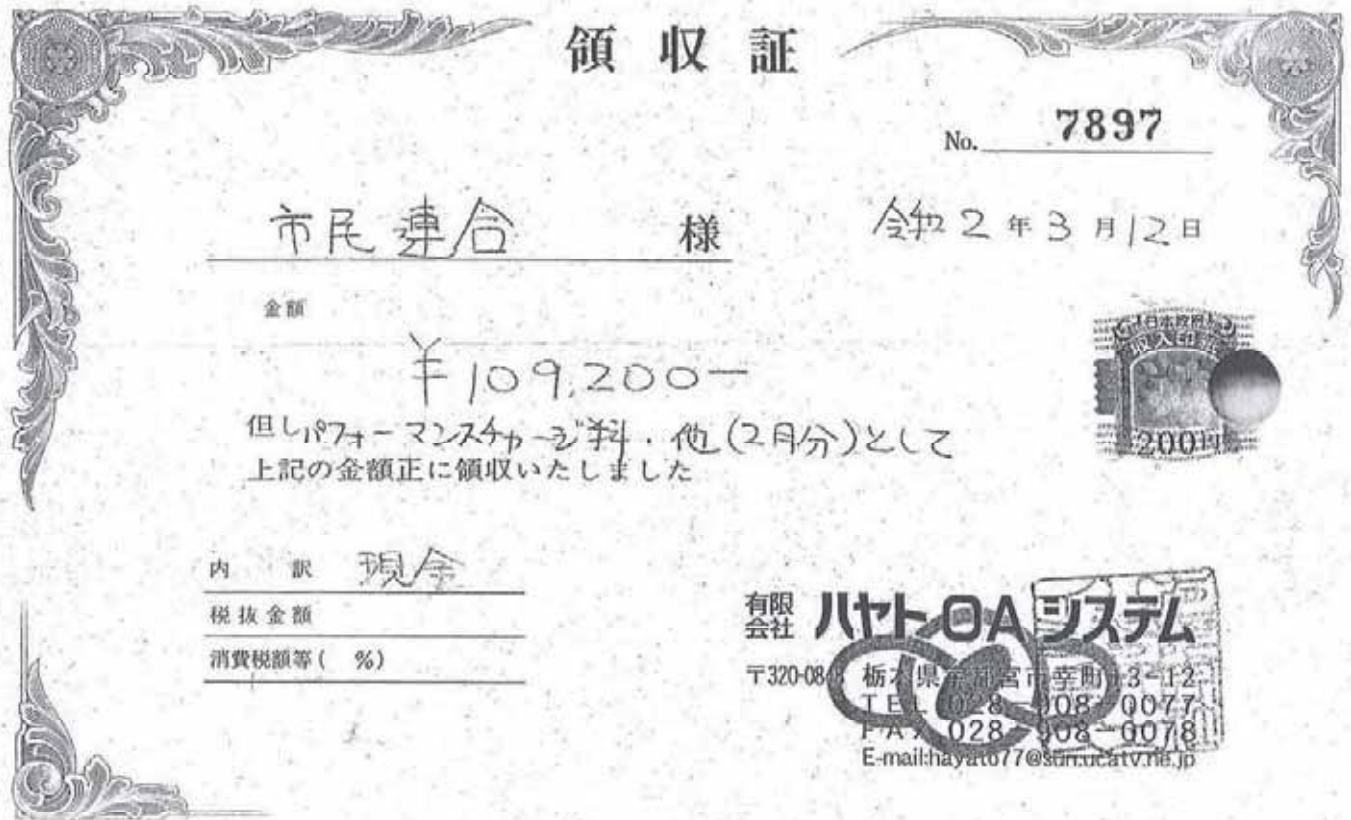 領収証
No. 7897
市民連合 様
令和2年3月12日
金額
¥109,200-
日本政府
収入印紙
200円
但しパフォーマンスチャージ料・他(2月分)として
上記の金額正に領収いたしました
内訳 現金
税抜金額
消費税額等( %)
有限会社 ハヤトOAシステム
〒320-08 栃木県宇都宮市幸町13-12
TEL 028-908-0077
FAX 028-908-0078
E-mail:hayato77@sun.ucatv.ne.jp